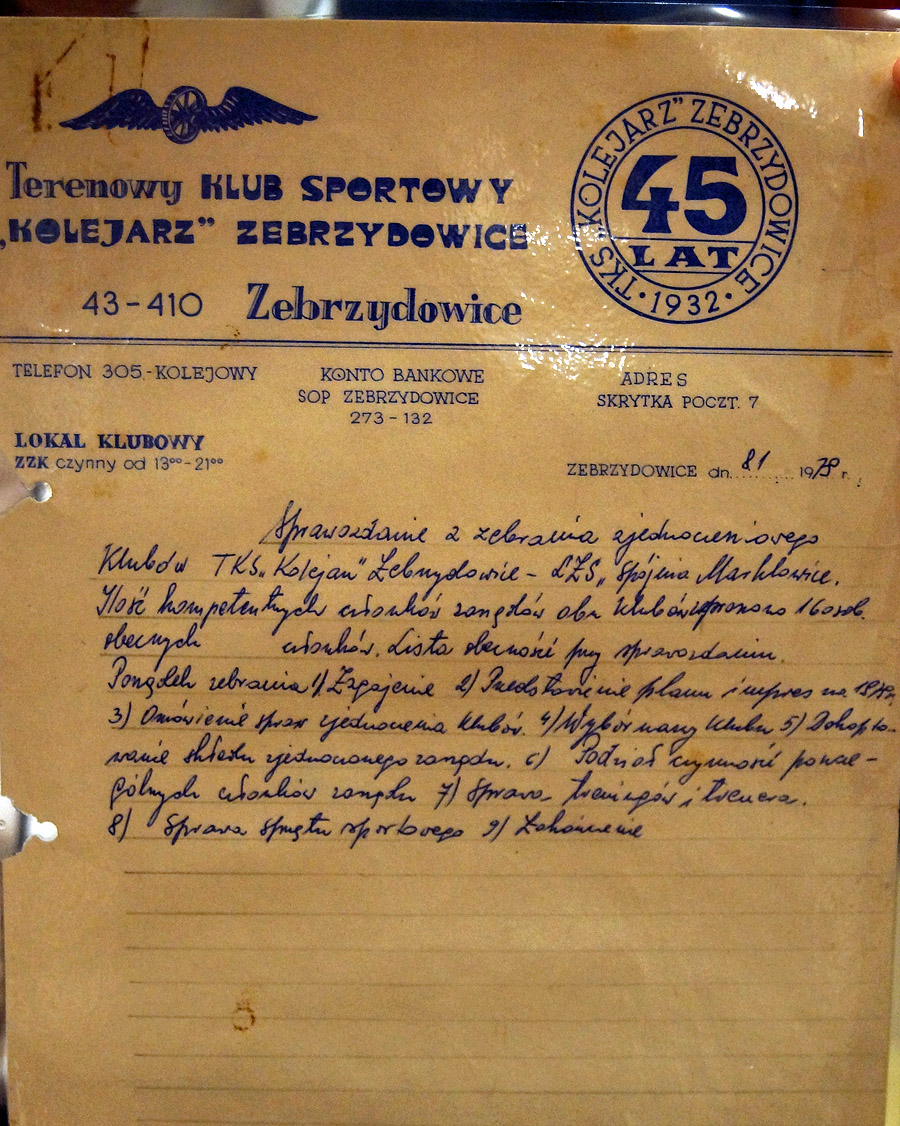 Terenowy KLUB SPORTOWY
„KOLEJARZ" ZEBRZYDOWICE
43-410 Zebrzydowice
TKS „KOLEJARZ" ZEBRZYDOWICE
45
LAT
• 1932 •
TELEFON 305-KOLEJOWY
KONTO BANKOWE
SOP ZEBRZYDOWICE
273-132
ADRES
SKRYTKA POCZT. 7
LOKAL KLUBOWY
ZZK czynny od 13⁰⁰-21⁰⁰
ZEBRZYDOWICE dn. 81 1979 r.
Sprawozdanie z zebrania zjednoczeniowego
Klubów TKS „Kolejarz" Zebrzydowice - LZS „Spójnia Marklowice.
Ilość kompetentnych członków zarządów obu klubów 16 osób.
obecnych członków. Lista obecność przy sprawozdaniu.
Porządek zebrania 1) Zagajenie 2) Przedstawienie planu imprez na
3) Omówienie spraw zjednoczenia klubów. 4) Wybór nazwy Klubu 5) Dokopto-
wanie składu zjednoczonego zarządu. 6) Podział czynność poszcze-
gólnych członków zarządu 7) Sprawa treningów i trenera.
8) Sprawa sprzętu sportowego 9) Zakończenie